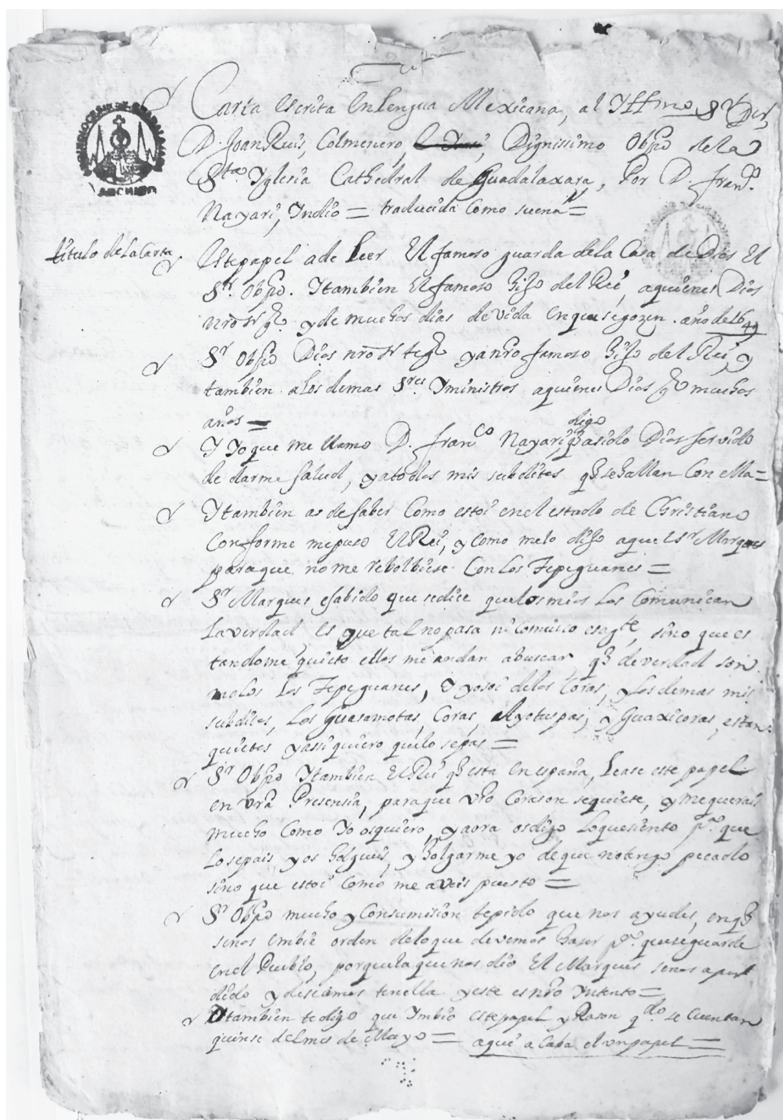 Carta escrita en lengua Mexicana, al Illmo Sr Dor
D. Joan Ruis, Colmenero, Dignissimo Obpo de la
Sta Iglesia Cathedral de Guadalaxara, Por D. franco
Nayari, Indio = traducida como suena =
titulo de la Carta
Este papel a de Leer El famoso guarda de la Casa de Dios El
Sr Obpo. I tambien El famoso hijo del Rei, a quienes Dios
nro Sr ge y de muchos dias de vida en que se gozen. año de 1649
Sr Obpo Dios nro Sr te ge y a nro famoso hijo del Rei, y
tambien a los demas Sres Yministros a quienes Dios ge muchos
años =
Y Yo que me llamo D. franco Nayari, digo q a sido Dios servido
de darme salud, y a todos mis subditos qe se hallan Con ella =
Y tambien as de saber Como estoi en el estado de Christiano
Conforme me puso El Rei, y como me lo dijo aquel Sr Marques
para que no me rebolbiese Con los Tepeguanes =
Sr Marques e sabido que se dice que los mios los Comunican
la verdad es que tal no pasa ni comunico esa gte, sino que es
tandome quieto ellos me andan a buscar, qe de verdad son
malos los Tepeguanes, Y yo soi de los Coras, y los demas mis
subditos, los Guasamotas, Coras, Ayotuspas, y Guaxicoras, estan
quietos y assi quiero que lo sepas =
Sr Obpo Y tambien El Rei qe esta en españa, Lease este papel
en vra Presensia, para que vro Corason se quiete, y me querais
mucho Como Yo os quiero, y aora os digo lo que siento, pa que
lo sepais y os holgueis, y holgarme yo de que no tengo pecado
sino que estoi Como me aveis puesto =
Sr Obpo mucho y Con sumision te pido que nos ayudes, en qe
se nos embie orden de lo que devemos haser pa que se guarde
en el Pueblo, porque la que nos dio El Marques se nos a per
dido y deseamos tenella y este es nro Yntento =
Y tambien te digo que Ymbio este papel y Rason qdo se Cuentan
quinse del mes de Mayo = aqui a Caba el papel =